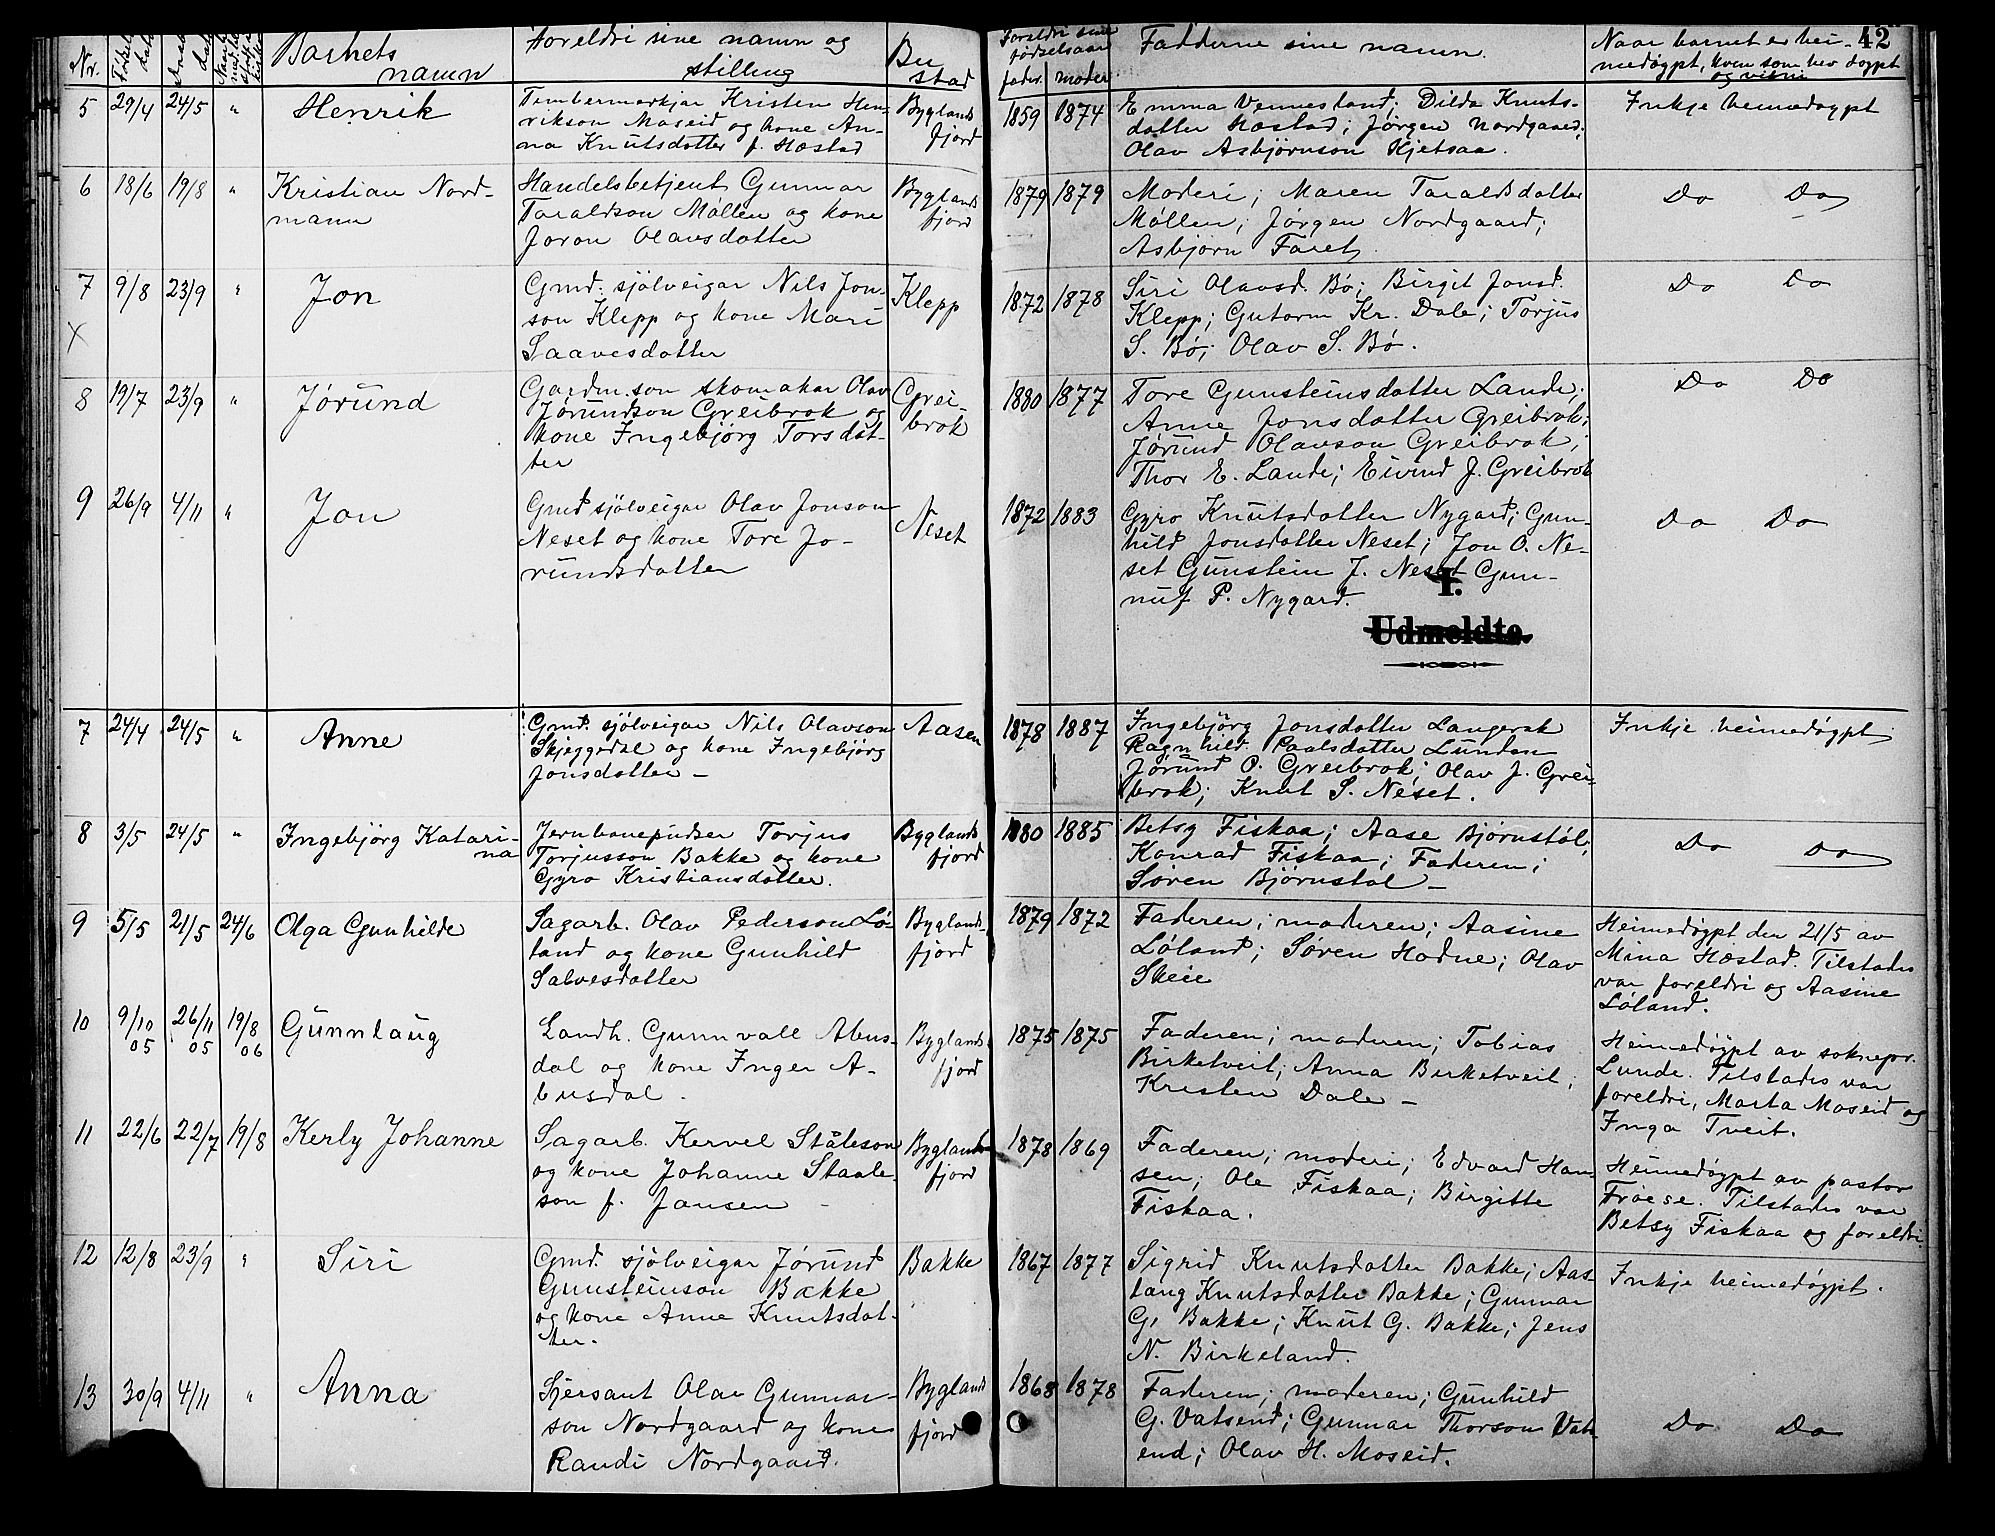 42
Nr.
Barnets
namn
Foreldri sine namn og
stilling
Bu
stad
Foreldri sine
fødselsaar
fader. moder
Fadderne sine namn.
Naar barnet er hei-
medøypt, kven som hev døypt
og vitni
5 29/4 24/5 " Henrik
Timbermerkjar Kristen Hen-
rikson Moseid og kone An-
na Knutsdotter f. Hæstad
Byglands
fjord
1859 1874
Emma Vennesland; Dilda Knuts-
dotter Hæstad; Jørgen Nordgaard;
Olav Asbjørnson Kjetsaa.
Inkje heimedøypt
6 18/6 19/8 " Kristian Nord-
mann
Handelsbetjent Gunnar
Taraldson Møllen og kone
Joron Olavsdotter
Byglands
fjord
1879 1879
Moderi; Maren Taraldsdotter
Møllen; Jørgen Nordgaard;
Asbjørn Faret.
Do Do
7 9/8 23/9 " Jon
X
Gmd. sjølveigar Nils Jon-
son Klepp og kone Mari
Saavesdotter
Klepp
1872 1878
Siri Olavsd. Bø; Birgit Jonsd.
Klepp; Gutorm Kr. Dale; Torjus
S. Bø; Olav S. Bø.
Do Do
8 19/7 23/9 " Jørund
Gardm. son skomakar Olav
Jørundson Greibrok og
kone Ingebjørg Torsdot-
ter
Grei-
brok
1880 1877
Tore Gunsteinsdotter Lande;
Anne Jonsdotter Greibrok;
Jørund Olavson Greibrok;
Thor E. Lande; Eivind J. Greibrok
Do Do
9 26/9 4/11 " Jon
Gmd sjølveigar Olav Jonson
Neset og kone Tore Jo-
rundsdotter
Neset
1872 1883
Gyro Knutsdotter Nygard; Gun-
hild Jonsdotter Neset; Jon O. Ne-
set Gunstein J. Neset Gun-
nuf P. Nygard.
Do Do
I.
Udmeldte.
7 24/4 24/5 " Anne
Gmd. sjølveigar Nils Olavson
Skjeggedal og kone Ingebjørg
Jonsdotter -
Aasen
1878 1887
Ingebjørg Jonsdotter Langerak
Ragnhild Paalsdotter Lunden
Jørund O. Greibrok; Olav J. Grei-
brok; Knut S. Neset.
Inkje heimedøypt
8 3/5 24/5 " Ingebjørg Katari-
na
Jernbanepudser Torjus
Torjusson Bakke og kone
Gyro Kristiansdotter.
Byglands
fjord
1880 1885
Betsy Fiskaa; Aase Bjørnstøl;
Konrad Fiskaa; Faderen;
Søren Bjørnstøl -
Do Do
9 5/5 21/5 24/6 Olga Gunhilde
Sagarb. Olav Pederson Lø-
land og kone Gunhild
Salvesdotter
Byglands-
fjord
1879 1872
Faderen; moderen; Aasine
Løland; Søren Hodne; Olav
Skeie
Heimedøypt den 21/5 av
Mina Hæstad. Tilstades
var foreldri og Aasine
Løland.
10 9/10 05 26/11 05 19/8 06 Gunnlaug
Landh. Gunnvall Abus-
dal og kone Inger A-
busdal.
Byglands
fjord
1875 1875
Faderen; moderen; Tobias
Birketveit; Anna Birketveit;
Kristen Dale -
Heimedøypt av soknepr.
Lunde. Tilstades var
foreldri, Marta Moseid og
Inga Tveit.
11 22/6 22/7 19/8 Kerly Johanne
Sagarb. Kervel Ståleson
og kone Johanne Staale-
son f. Jansen -
Byglands
fjord
1878 1869
Faderen; moderi; Edvard Han-
sen; Ole Fiskaa; Birgitte
Fiskaa.
Heimedøypt av pastor
Frøese. Tilstades var
Betsy Fiskaa og foreldri.
12 12/8 23/9 " Siri
Gmd. sjølveigar Jørund
Gunsteinson Bakke
og kone Anne Knutsdot-
ter.
Bakke
1867 1877
Sigrid Knutsdotter Bakke; Aas-
laug Knutsdotter Bakke; Gunnar
G. Bakke; Knut G. Bakke; Jens
N. Birkeland.
Inkje heimedøypt.
13 30/9 4/11 " Anna
Sjersant Olav Gunnar-
son Nordgaard og kone
Randi Nordgaard.
Byglands
fjord
1868 1878
Faderen; moderen; Gunhild
G. Vatsend; Gunnar Thorson Vats-
end; Olav H. Moseid.
Do Do